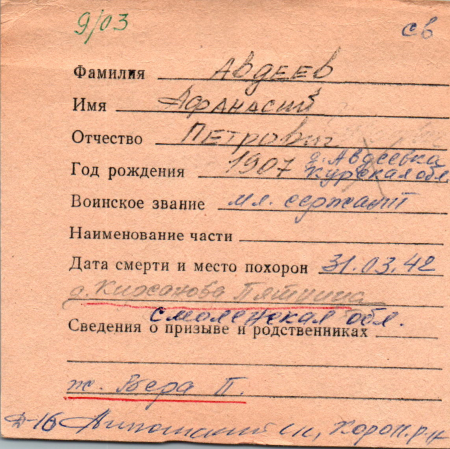 9/03 св
Фамилия АВДЕЕВ
Имя АФАНАСИЙ
Отчество ПЕТРОВИЧ
д. Авдеевка
Год рождения 1907 Курская обл
Воинское звание мл. сержант
Наименование части
Дата смерти и место похорон 31.03.42
д. Кирсанова Пятница
Смоленская обл.
Сведения о призыве и родственниках
ж. Вера П.
Д-16